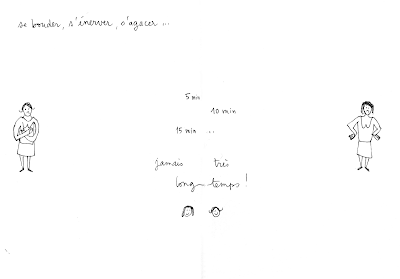 se bouder, s'énerver, s'agacer ...
5 min
10 min
15 min ..
jamais très
long-temps !